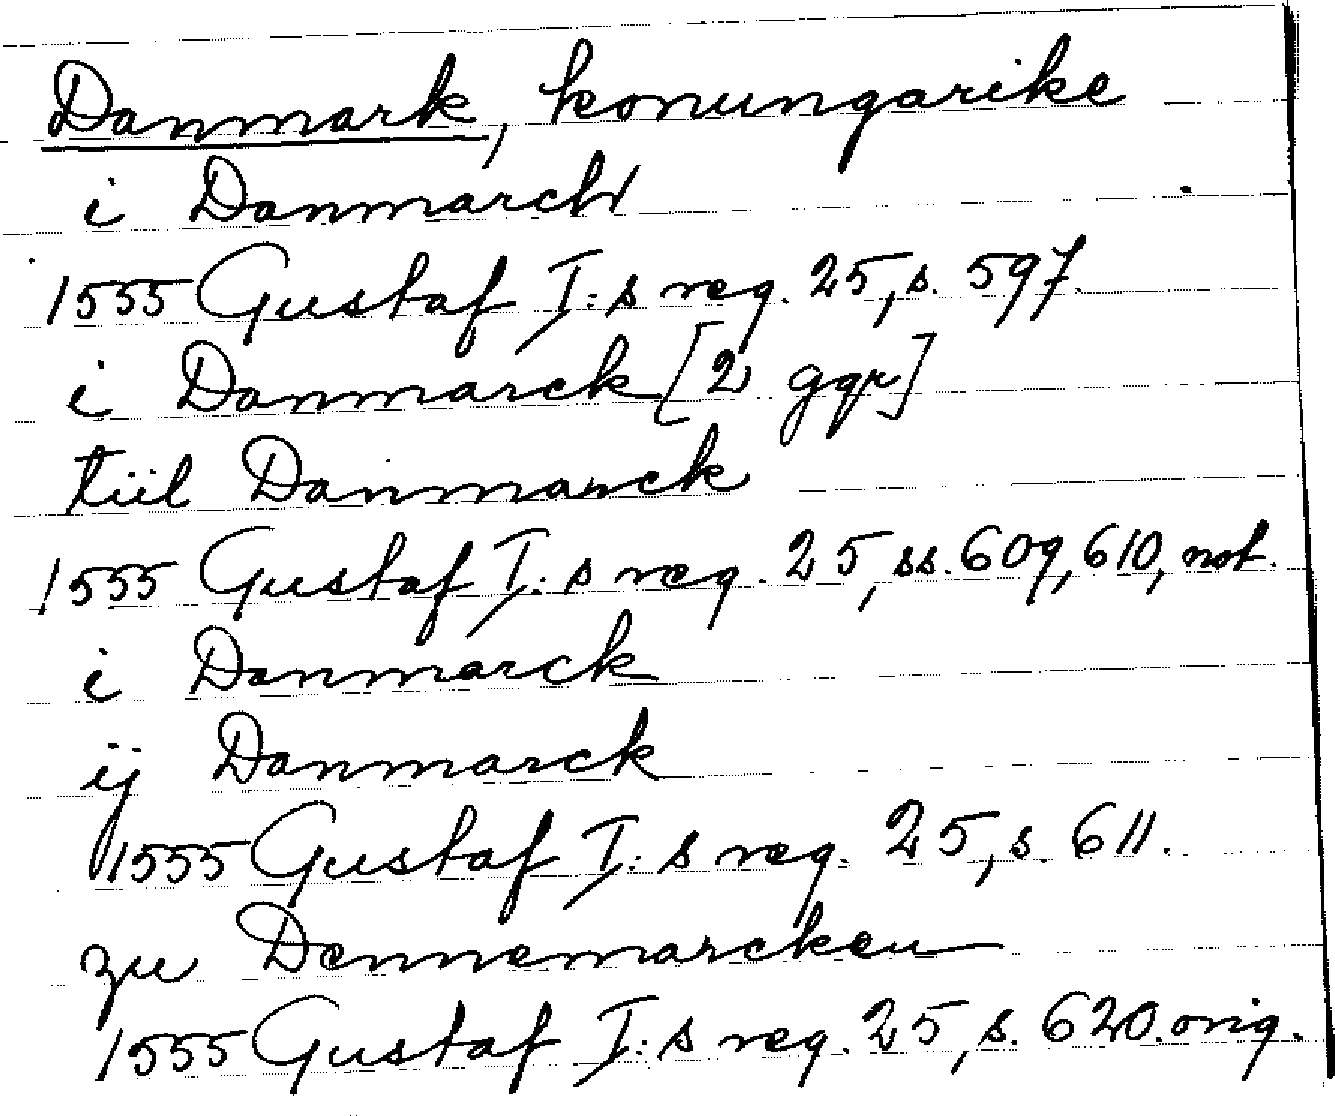 Danmark, konungarike
i Danmarch
1555 Gustaf I:s reg. 25, s. 597.
i Danmarck [2 ggr]
tiil Danmarck
1555 Gustaf I:s reg. 25, ss. 609, 610, not.
i Danmarck
ij Danmarck
1555 Gustaf I:s reg. 25, s. 611.
zu Dennemarcken
1555 Gustaf I:s reg. 25, s. 620. orig.